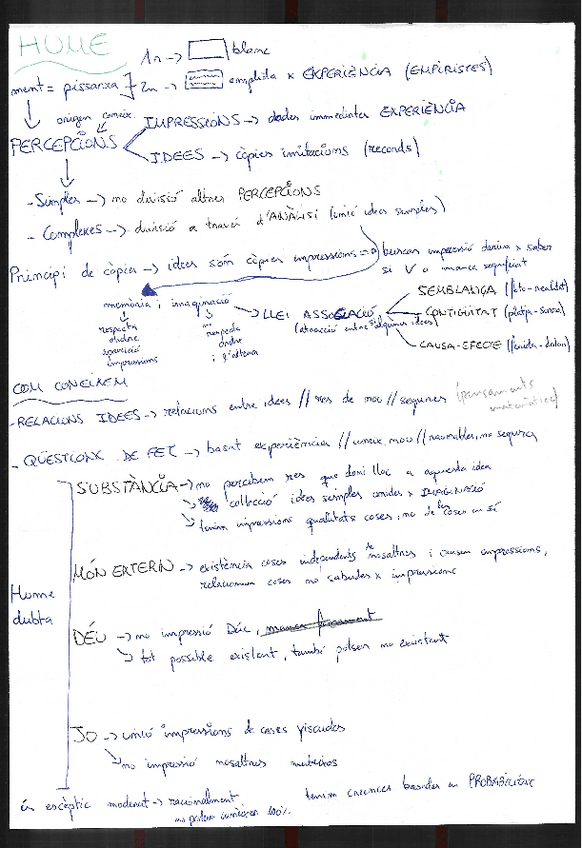 HUME
1r -> blanc
ment = pissarra 2n -> emplida x EXPERIÈNCIA (EMPIRISTES)
origen coneix.
PERCEPCIONS
IMPRESSIONS -> dades immediates EXPERIÈNCIA
IDEES -> còpies imitacions (records)
- Simples -> no divisió altres PERCEPCIONS
- Complexes -> divisió a través d'ANÀLISI (unió idees simples)
Principi de còpia -> idees són còpies impressions => buscar impressió deriva x saber
si V o manca significat
memòria i imaginació
respecta
ordre
aparició
impressions
no
respecta
ordre
i l'altera
LLEI ASSOCIACIÓ
(atracció entre algunes idees)
SEMBLANÇA (foto-realitat)
CONTIGÜITAT (platja-sorra)
CAUSA-EFECTE (ferida-dolor)
COM CONEIXEM
- RELACIONS IDEES -> relacions entre idees // res de nou // segures (pensaments
matemàtics)
- QÜESTIONS DE FET -> basat experiència // coneix. nou // raonables, no segures
Hume
dubta
SUBSTÀNCIA -> no percebem res que doni lloc a aquesta idea
col·lecció idees simples unides x IMAGINACIÓ
tenim impressions qualitats coses, no de les coses en si
MÓN EXTERN -> existència coses independents de nosaltres i causen impressions,
relacionem coses no sabudes x impressions
DÉU -> no impressió Déu,
tot possible existent, també potser no existent
JO -> unió impressions de coses viscudes
no impressió nosaltres mateixos
és escèptic moderat -> racionalment
no podem conèixer 100%
tenim creences basades en PROBABILITAT